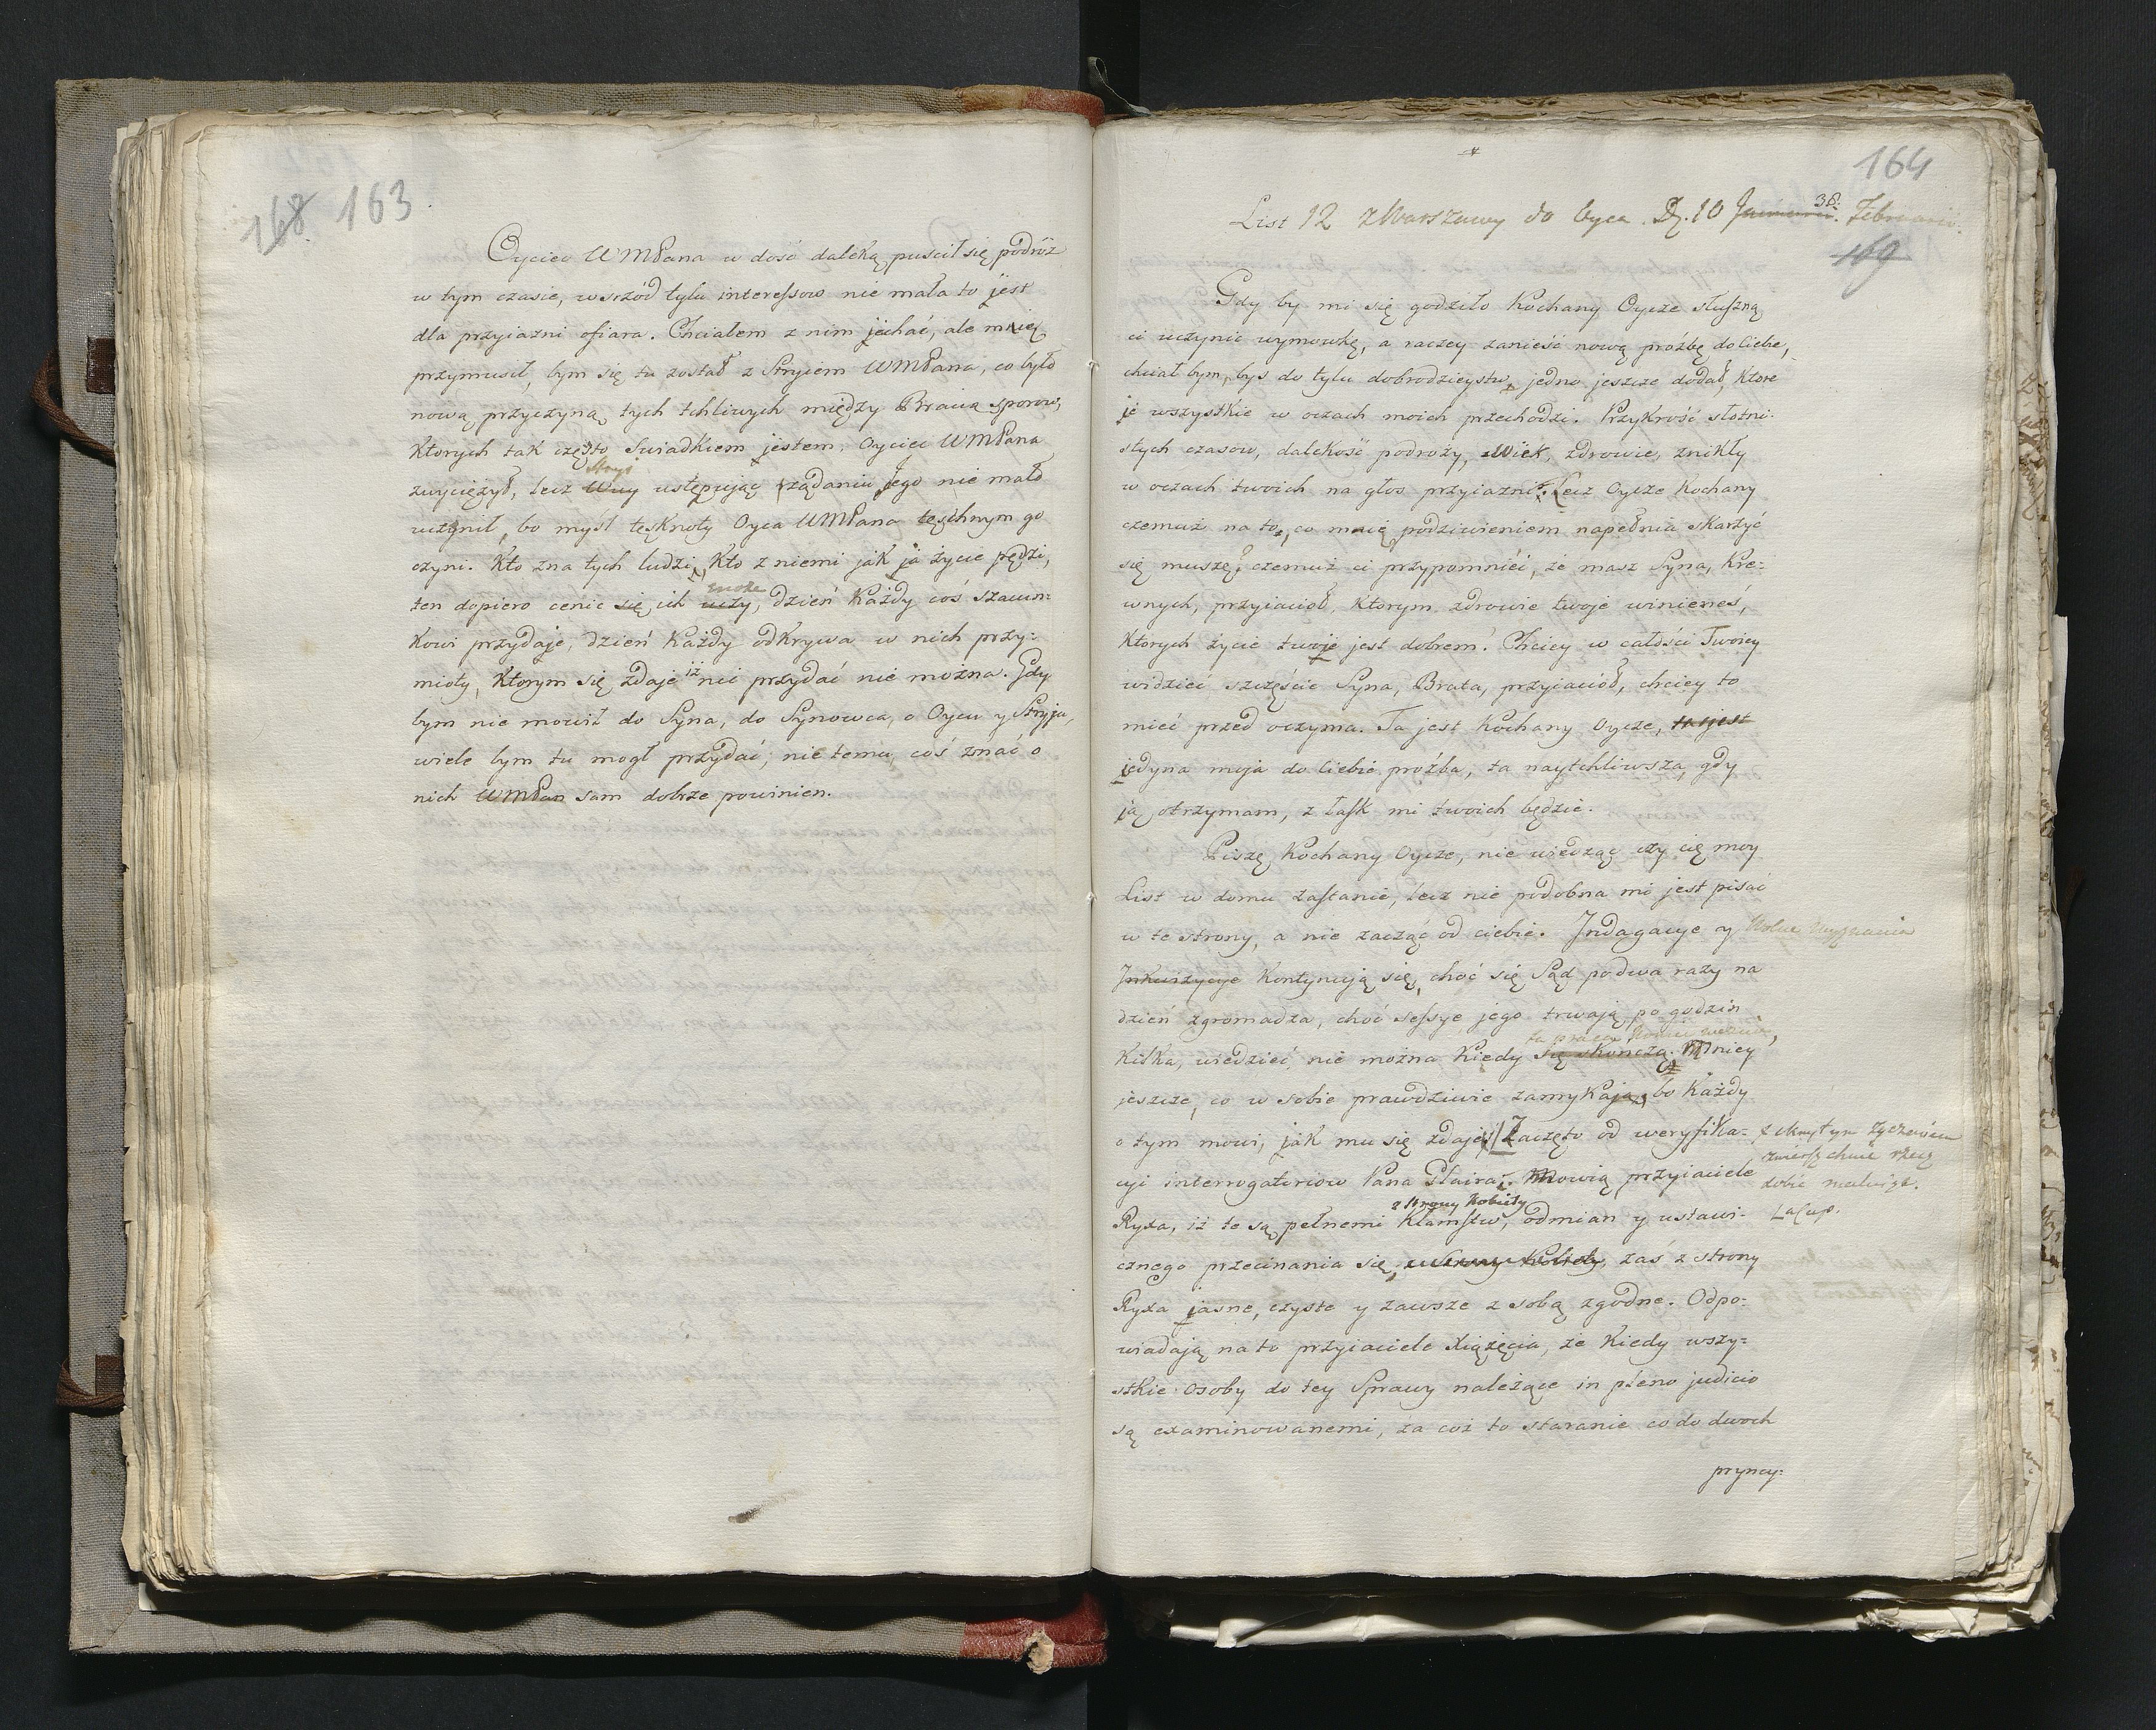 168. 163
Oyciec WMPana w dość daleką puscił się podróż
w tym czasie, wsrzód tylu interessow nie mała to jest
dla przyiazni ofiara. Chciałem z nim jechać, ale mnię
przymusił, bym się tu został z Stryiem WMPana, co było
nową przyczyną tych tchliwych między Bracią sporow,
Ktorych tak często Swiadkiem jestem, Oyciec WMPana
Stryi
zwyciężył, lecz Wuy ustępuiąc żądaniu Jego nie mało
uczynił, bo myśl tęsknoty Oyca WMPana tęschnym go
czyni. Kto zna tych ludzi, Kto z niemi jak ja życie pędzi,
może
ten dopiero cenic się ich uczy, dzień Każdy coś szacun-
kowi przydaje, dzień Każdy odkrywa w nich przy-
mioty, Ktorym się zdaje iż nic przydać nie można. Gdy
bym nie mowił do Syna, do Synowca, o Oycu y Stryju,
wiele bym tu mogł przydać; nie temu coś znać o
nich WMPan sam dobrze powinien.
164
38.
List 12 z Warszawy do Oyca. D. 10 Januarii. Februarii.
169
Gdy by mi się godziło Kochany Oycze słuszną
ci uczynic wymowkę, a raczey zanieść nową prózbę do Ciebe,
chciał bym, bys do tylu dobrodzieystw, jedno jeszcze dodał, Ktore
je wszystkie w oczach moich przechodzi. Przykrość słotni-
stych czasow, dalekość podroży, Wiek, zdrowie, znikły
w oczach twoich na głos przyiazni. Lecz Oycze Kochany
czemuż na to, co mnię podziwieniem napełnia skarżyć
się muszę? czemuż ci przypomnieć, że masz Syna, Kre-
wnych, przyiacioł, Ktorym zdrowie twoje winieneś,
Ktorych życie twoje jest dobrem? Chciey w całości Twoiey
widzieć szczęście Syna, Brata, przyiacioł, chciey to
mieć przed oczyma. Ta jest Kochany Oycze, ta jest
jedyna moja do Ciebie prózba, ta naytchliwsza, gdy
ją otrzymam, z łask mi twoich będzie.
Piszę Kochany Oycze, nie wiedząc czy cię moy
List w domu zastanie, lecz nie podobna mi jest pisać
w te strony, a nie zacząć od ciebie. Indagacye y Wolne wyznania
Inkwizycye Kontynują się, choć się Sąd po dwa razy na
dzień zgromadza, choć sessye jego trwają po godzin
ta praca
Kilka, wiedzieć nie można Kiedy się skonczą. Mniey
jeszcze, co w sobie prawdziwie zamykają, bo Każdy
o tym mowi, jak mu się zdaje. Zaczęto od weryfika-
z skrytym życzeniem
cyi interrogatoriow Pana Plaira. Mowią przyiaciele
z strony Kobiety
Ryxa, iż te są pełnemi Kłamstw, odmian y ustawi-
cznego przecinania się z strony Kobiety, zaś z strony
Ryxa jasne, czyste y zawsze z sobą zgodne. Odpo-
wiadają na to przyiaciele Xiążęcia, że Kiedy wszy-
stkie Osoby do tey Sprawy należące in pleno judicio
są examinowanemi, za coż to staranie co do dwoch
pryncy-